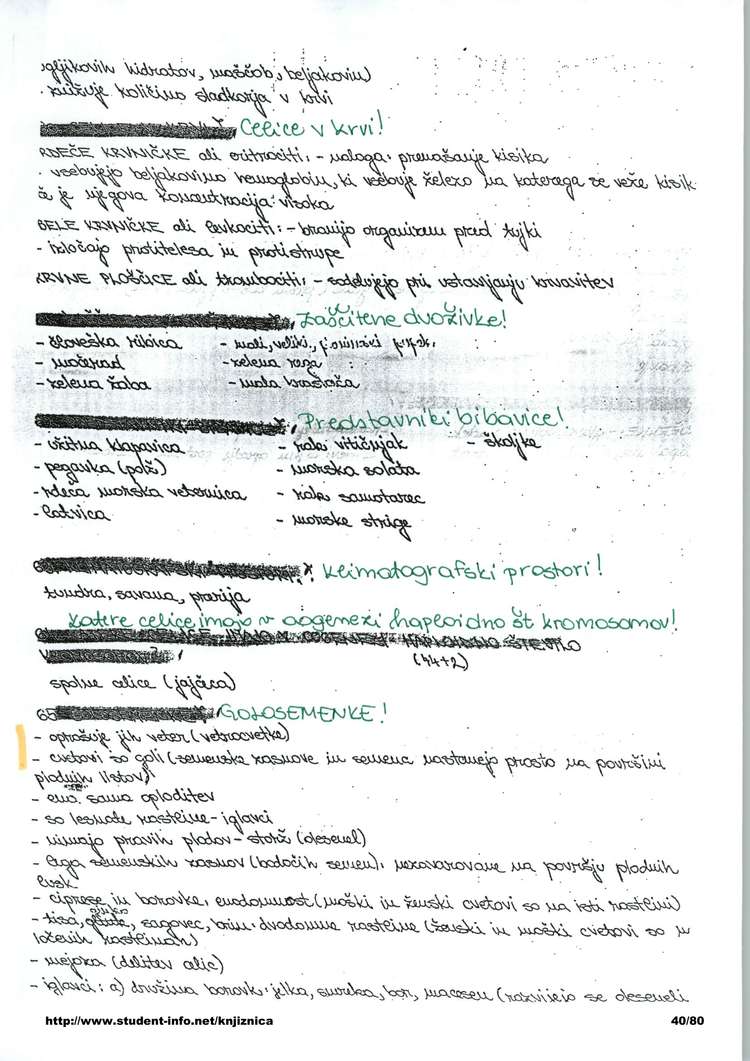 ogljikovih hidratov, maščob, beljakovin)
- znižuje količino sladkorja v krvi
Celice v krvi!
RDEČE KRVNIČKE ali eritrociti: - naloga: prenašanje kisika
- vsebujejo beljakovino hemoglobin, ki vsebuje železo na katerega se veže kisik
če je njegova koncentracija visoka
BELE KRVNIČKE ali levkociti: - branijo organizem pred tujki
- izločajo protitelesa in protistrupe
KRVNE PLOŠČICE ali trombociti: - sodelujejo pri ustavljanju krvavitev
Zaščitene dvoživke!
- človeška ribica - mali, veliki, planinski pupek
- močerad - zelena rega
- zelena žaba - mala krastača
Predstavniki bibavice!
- užitna klapavica - rak vitičnjak - školjke
- pegavka (polž) - morska solata
- rdeča morska vetrnica - rak samotarec
- latvica - morske strige
Klimatografski prostori!
tundra, savana, prerija
Katere celice imajo v oogenezi haploidno št kromosomov!
HAPLOIDNO ŠTEVILO
(44+2)
spolne celice (jajčeca)
65 GOLOSEMENKE!
- oprašuje jih veter (vetrocvetke)
- cvetovi so goli (semenske zasnove in semena nastanejo prosto na površini
plodnih listov)
- ena sama oploditev
- so lesnate rastline - iglavci
- nimajo pravih plodov - storž (oleseneli)
- lega semenskih zasnov (bodočih semen): nezavarovane na površju plodnih
lusk
- ciprese in borovke: enodomnost (moški in ženski cvetovi so na isti rastlini)
- tisa, ginko, sagovec, brin: dvodomne rastline (ženski in moški cvetovi so na
ločenih rastlinah)
- mejoza (delitev celic)
- iglavci: a) družina borovk: jelka, smreka, bor, macesen (razvijejo se oleseneli
http://www.student-info.net/knjiznica 40/80